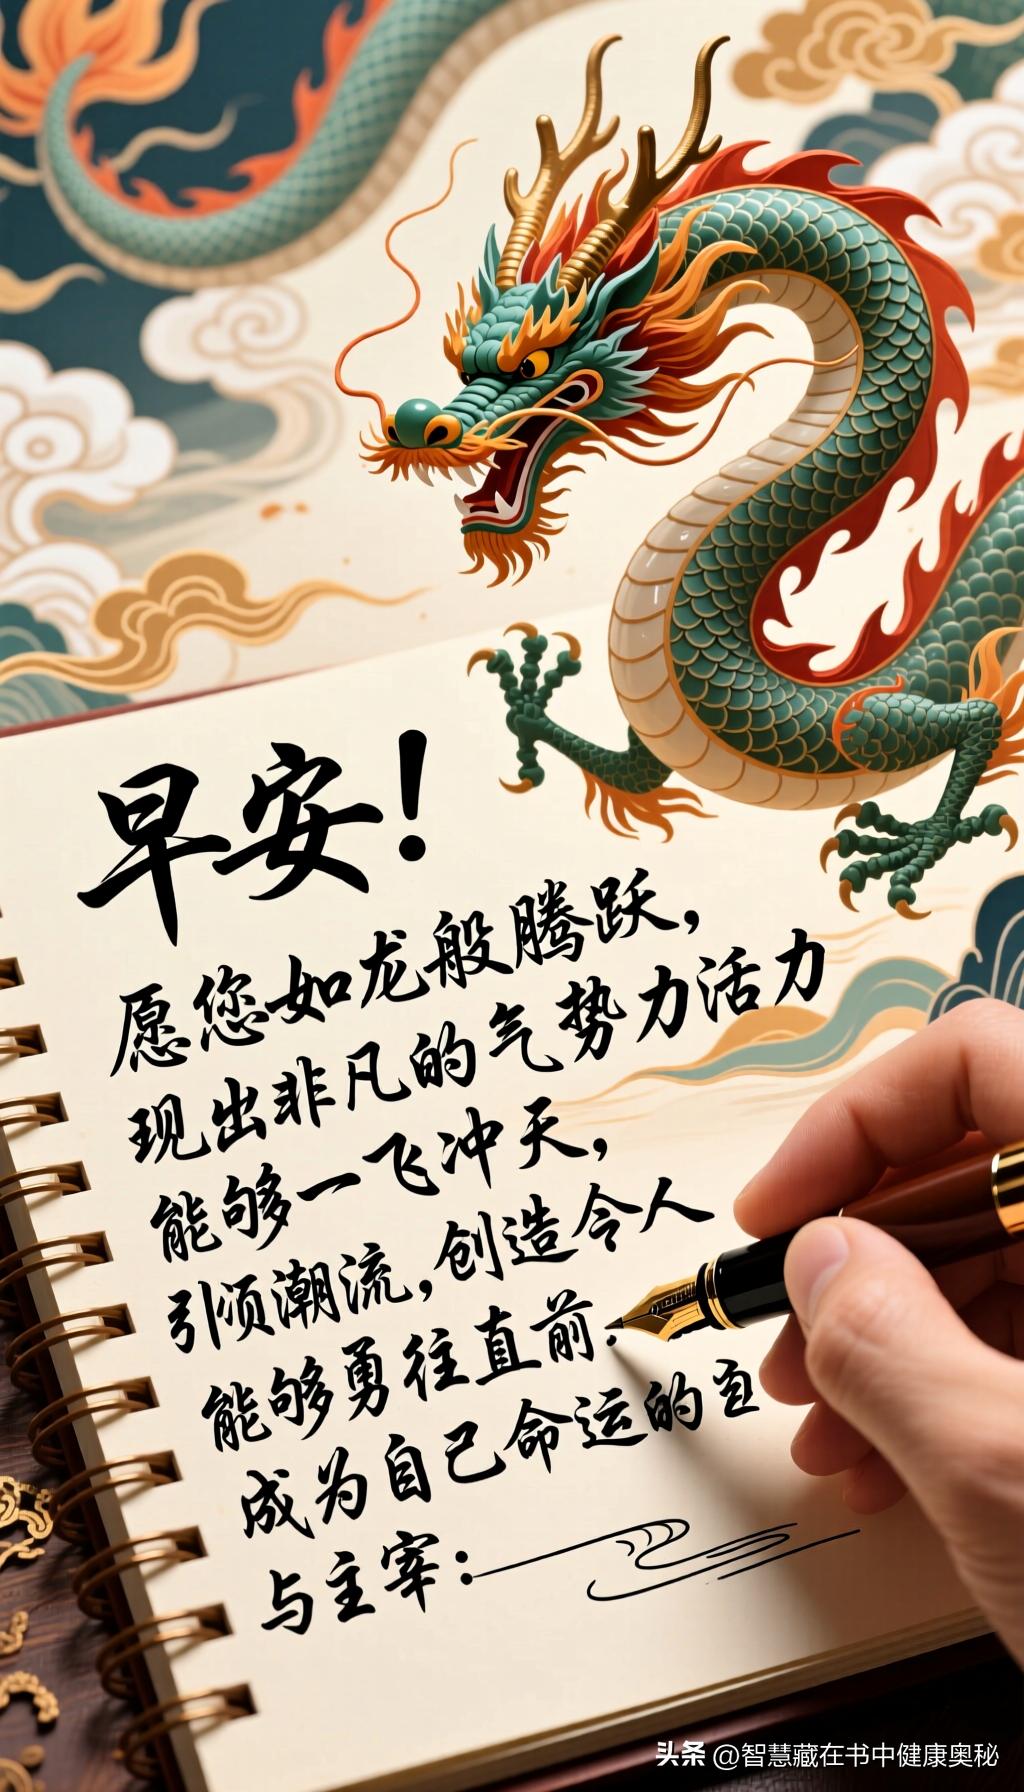 早安！
愿您如龙般腾跃，
现出非凡的气势力活力
能够一飞冲天，
引领潮流，创造令人
能够勇往直前.
成为自己命运的
与主宰：
头条 @智慧藏在书中健康奥秘